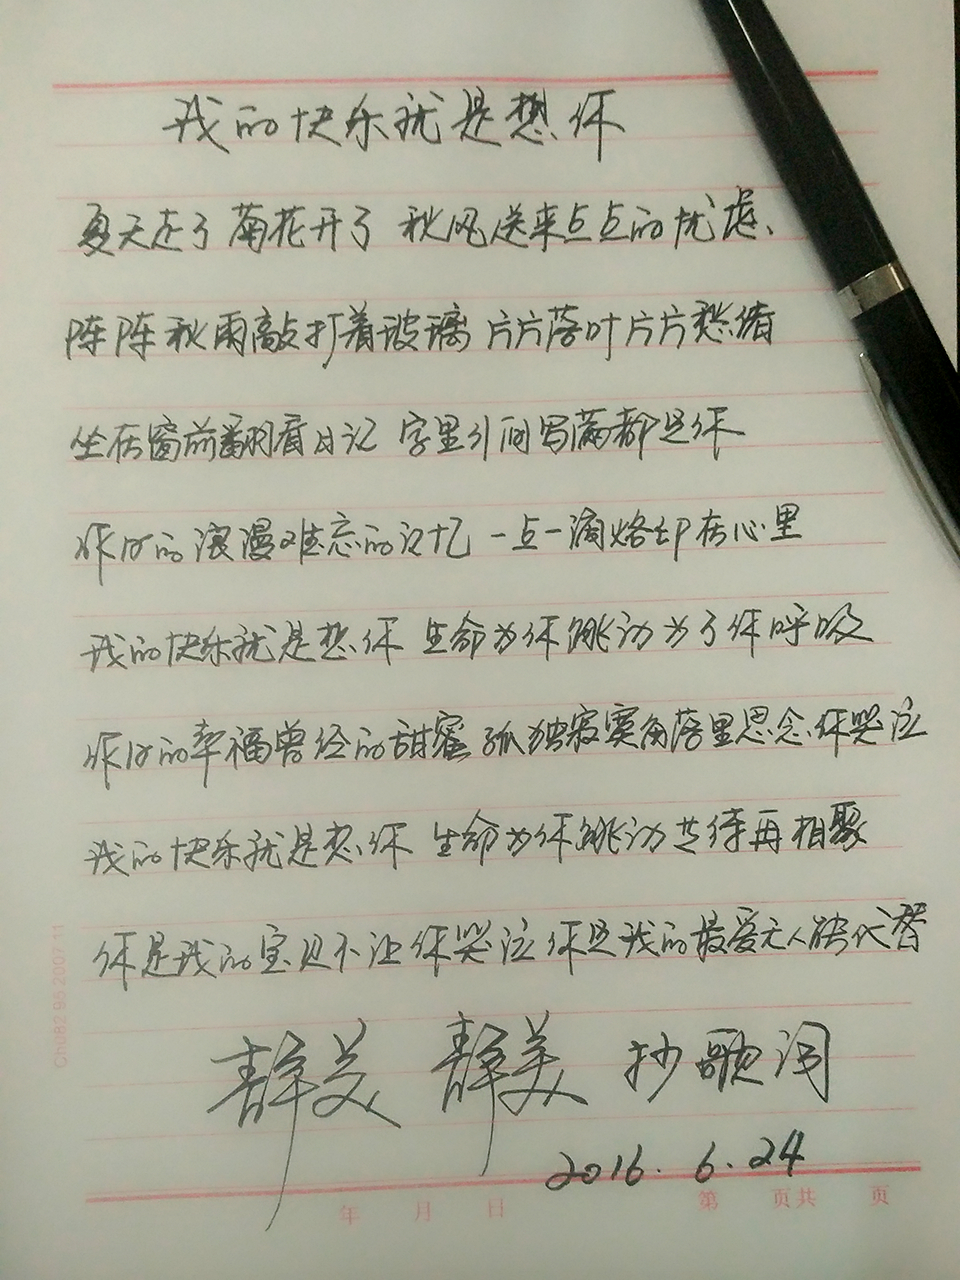 我的快乐就是想你
夏天走了 菊花开了 秋风送来点点的忧虑、
阵阵秋雨敲打着玻璃 片片落叶片片愁绪
坐在窗前翻看日记 字里引间写满都是你
你我的浪漫难忘的记忆 一点一滴烙印在心里
我的快乐就是想你 生命为你跳动为了你呼吸
你我的幸福曾经的甜蜜 孤独寂寞角落里思念你哭泣
我的快乐就是想你 生命为你跳动共待再相聚
你是我的宝贝不让你哭泣 你是我的最爱无人能代替
静美 静美 抄歌词
2016.6.24
年 月 日 第 页共 页